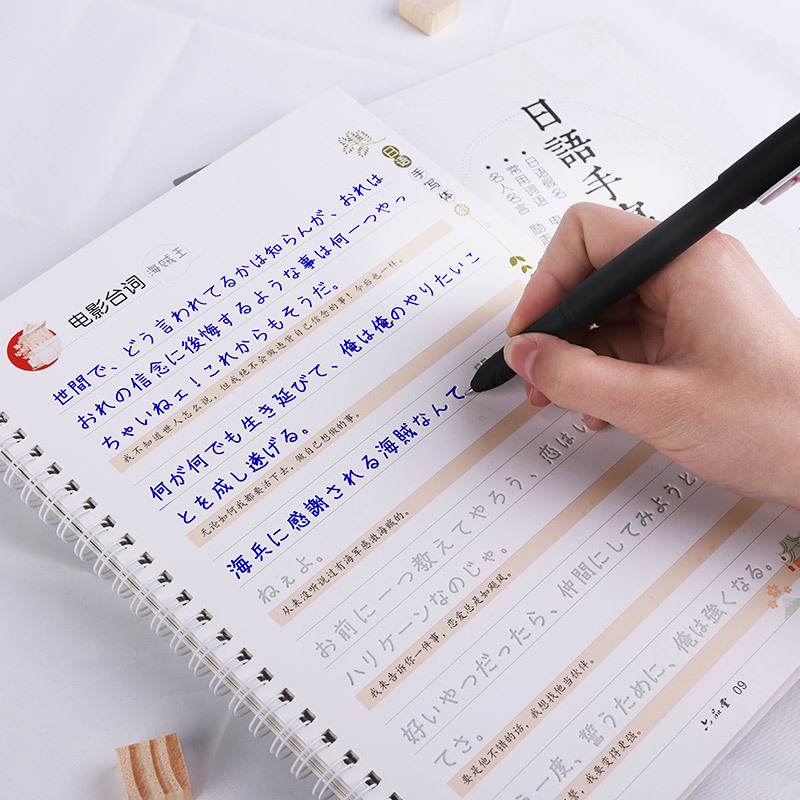 日语
手写体
日語手
日语假名
常用词语
名人名言
励志
电影台词
海贼王
世間で、どう言われてるかは知らんが、おれは
おれの信念に後悔するような事は何一つやっ
ちゃいねェ！これからもそうだ。
我不知道世人怎么说，但我绝不会做违背自己信念的事！今后也一样。
何が何でも生き延びて、俺は俺のやりたいこ
とを成し遂げる。
无论如何我都要活下去，做自己想做的事。
海兵に感謝される海賊なんて
ねぇよ。
从来没听说过有海军感激海贼的。
お前に一つ教えてやろう、恋はい
ハリケーンなのじゃ。
我来告诉你一件事，恋爱总是如飓风。
好いやつだったら、仲間にしてみようと
てさ。
要是他不错的话，我想找他当伙伴。
う一度、誓うために、俺は強くなる。
苦，我要变得更强。
六品堂 09